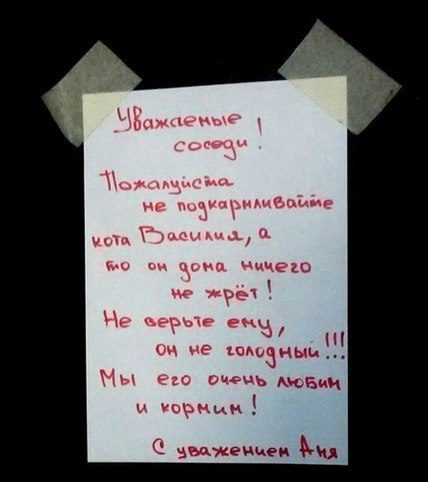 Уважаемые
соседи!
Пожалуйста
не подкармливайте
кота Василия, а
то он дома ничего
не жрёт!
Не верьте ему,
он не голодный!!!
Мы его очень любим
и кормим!
С уважением Аня